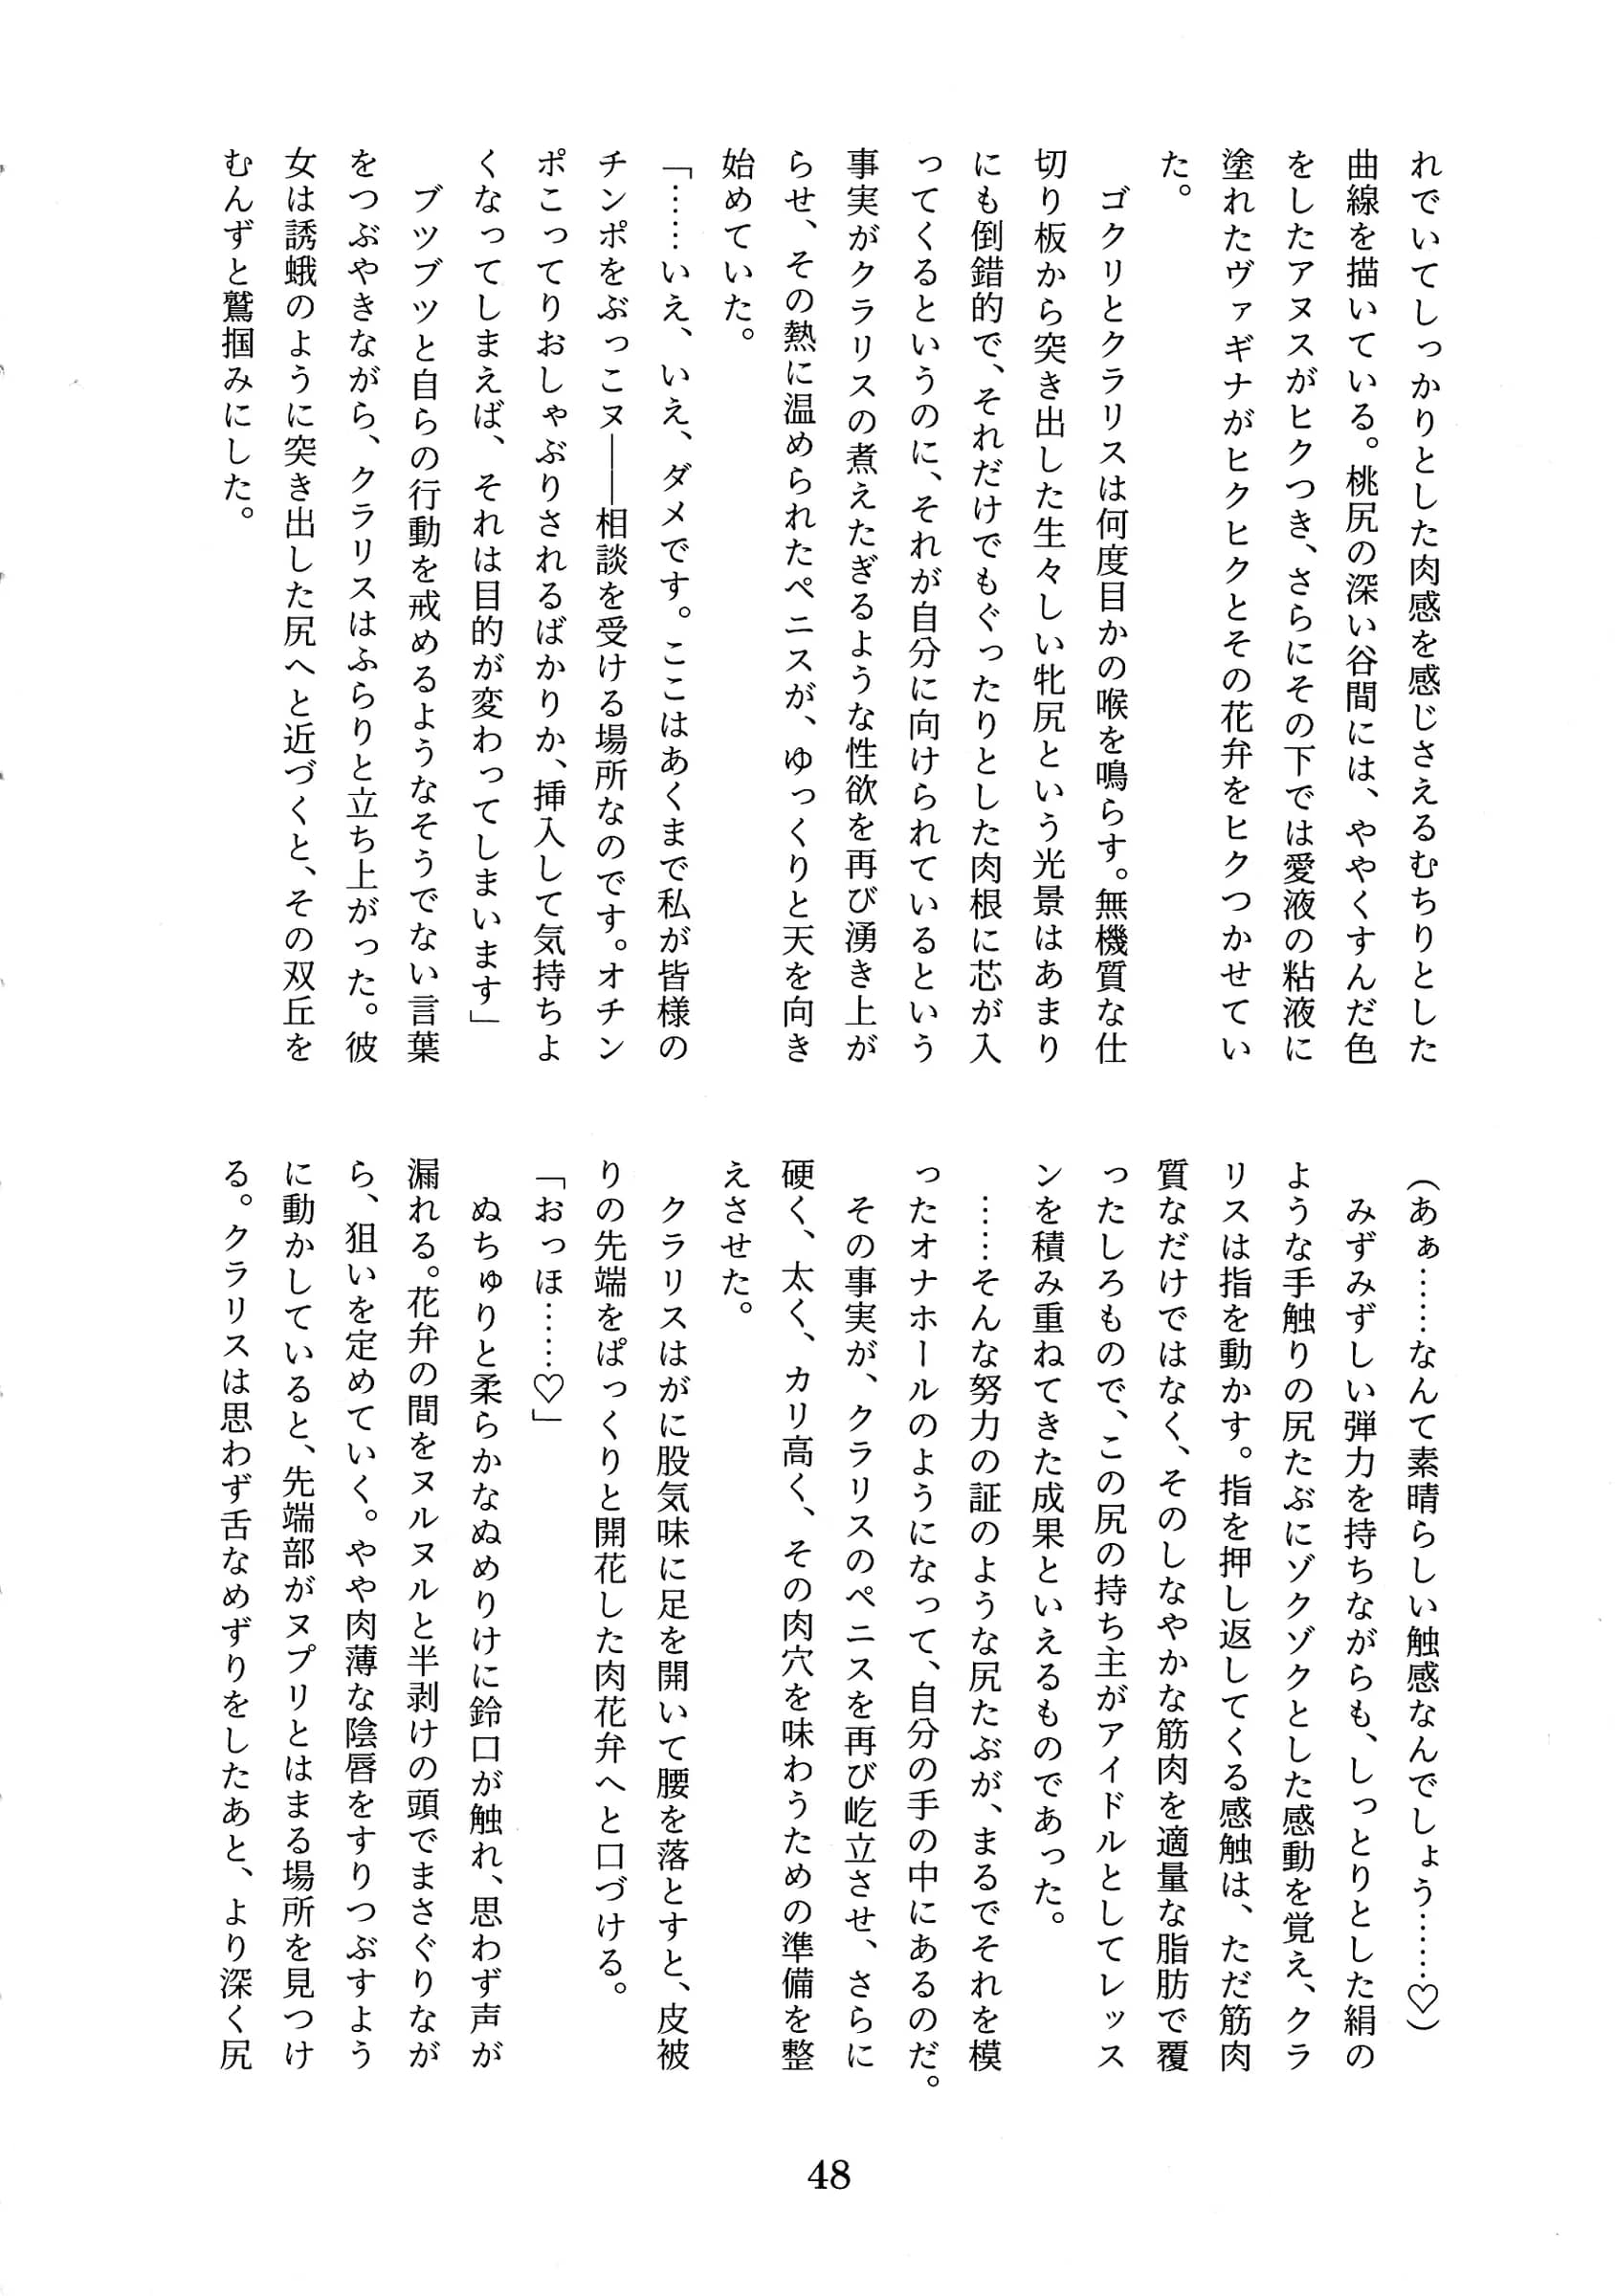 れでいてしっかりとした肉感を感じさえるむちりとした
曲線を描いている。桃尻の深い谷間には、ややくすんだ色
をしたアヌスがヒクつき、さらにその下では愛液の粘液に
塗れたヴァギナがヒクヒクとその花弁をヒクつかせてい
た。
　ゴクリとクラリスは何度目かの喉を鳴らす。無機質な仕
切り板から突き出した生々しい牝尻という光景はあまり
にも倒錯的で、それだけでもぐったりとした肉根に芯が入
ってくるというのに、それが自分に向けられているという
事実がクラリスの煮えたぎるような性欲を再び湧き上が
らせ、その熱に温められたペニスが、ゆっくりと天を向き
始めていた。
「……いえ、いえ、ダメです。ここはあくまで私が皆様の
チンポをぶっこヌ――相談を受ける場所なのです。オチン
ポこってりおしゃぶりされるばかりか、挿入して気持ちよ
くなってしまえば、それは目的が変わってしまいます」
　ブツブツと自らの行動を戒めるようなそうでない言葉
をつぶやきながら、クラリスはふらりと立ち上がった。彼
女は誘蛾のように突き出した尻へと近づくと、その双丘を
むんずと鷲掴みにした。
（あぁ……なんて素晴らしい触感なんでしょう……♡）
　みずみずしい弾力を持ちながらも、しっとりとした絹の
ような手触りの尻たぶにゾクゾクとした感動を覚え、クラ
リスは指を動かす。指を押し返してくる感触は、ただ筋肉
質なだけではなく、そのしなやかな筋肉を適量な脂肪で覆
ったしろもので、この尻の持ち主がアイドルとしてレッス
ンを積み重ねてきた成果といえるものであった。
　……そんな努力の証のような尻たぶが、まるでそれを模
ったオナホールのようになって、自分の手の中にあるのだ。
　その事実が、クラリスのペニスを再び屹立させ、さらに
硬く、太く、カリ高く、その肉穴を味わうための準備を整
えさせた。
　クラリスはがに股気味に足を開いて腰を落とすと、皮被
りの先端をぱっくりと開花した肉花弁へと口づける。
「おっほ……♡」
　ぬちゅりと柔らかなぬめりけに鈴口が触れ、思わず声が
漏れる。花弁の間をヌルヌルと半剥けの頭でまさぐりなが
ら、狙いを定めていく。やや肉薄な陰唇をすりつぶすよう
に動かしていると、先端部がヌプリとはまる場所を見つけ
る。クラリスは思わず舌なめずりをしたあと、より深く尻
48